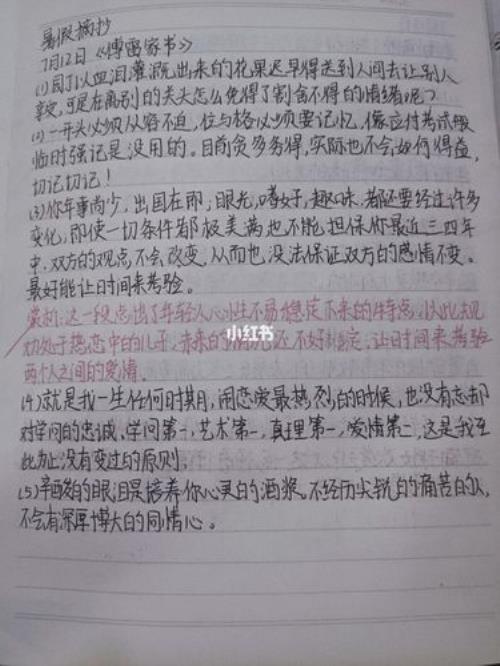 暑假摘抄
7月12日《傅雷家书》
(1)园丁以血泪灌溉出来的花果迟早得送到人间去让别人
享受,可是在离别的关头怎么免得了割舍不得的情绪呢?
(2)一开头必须从容不迫,位与格必须要记忆,像应付考试般
临时强记是没用的。目前贪多务得,实际也不会如何得益,
切记切记!
(3)你年事尚少,出国在即;眼光,嗜好,趣味,都还要经过许多
变化,即使一切条件都极美满也不能担保你最近三四年
中,双方的观点不会改变,从而也没法保证双方的感情不变。
最好能让时间来考验。
赏析:这一段点出了年轻人心性不易稳定下来的特点,以此去规
劝处于热恋中的儿子,未来的情况还不好制定,让时间来考验
两个人之间的爱情。
小红书
(4)就是我一生任何时期,闹恋爱最热烈的时候,也没有忘却
对学问的忠诚。学问第一,艺术第一,真理第一,爱情第二,这是我至
此为止没有变过的原则。
(5)辛酸的眼泪是培养你心灵的酒浆。不经历尖锐的痛苦的人,
不会有深厚博大的同情心。